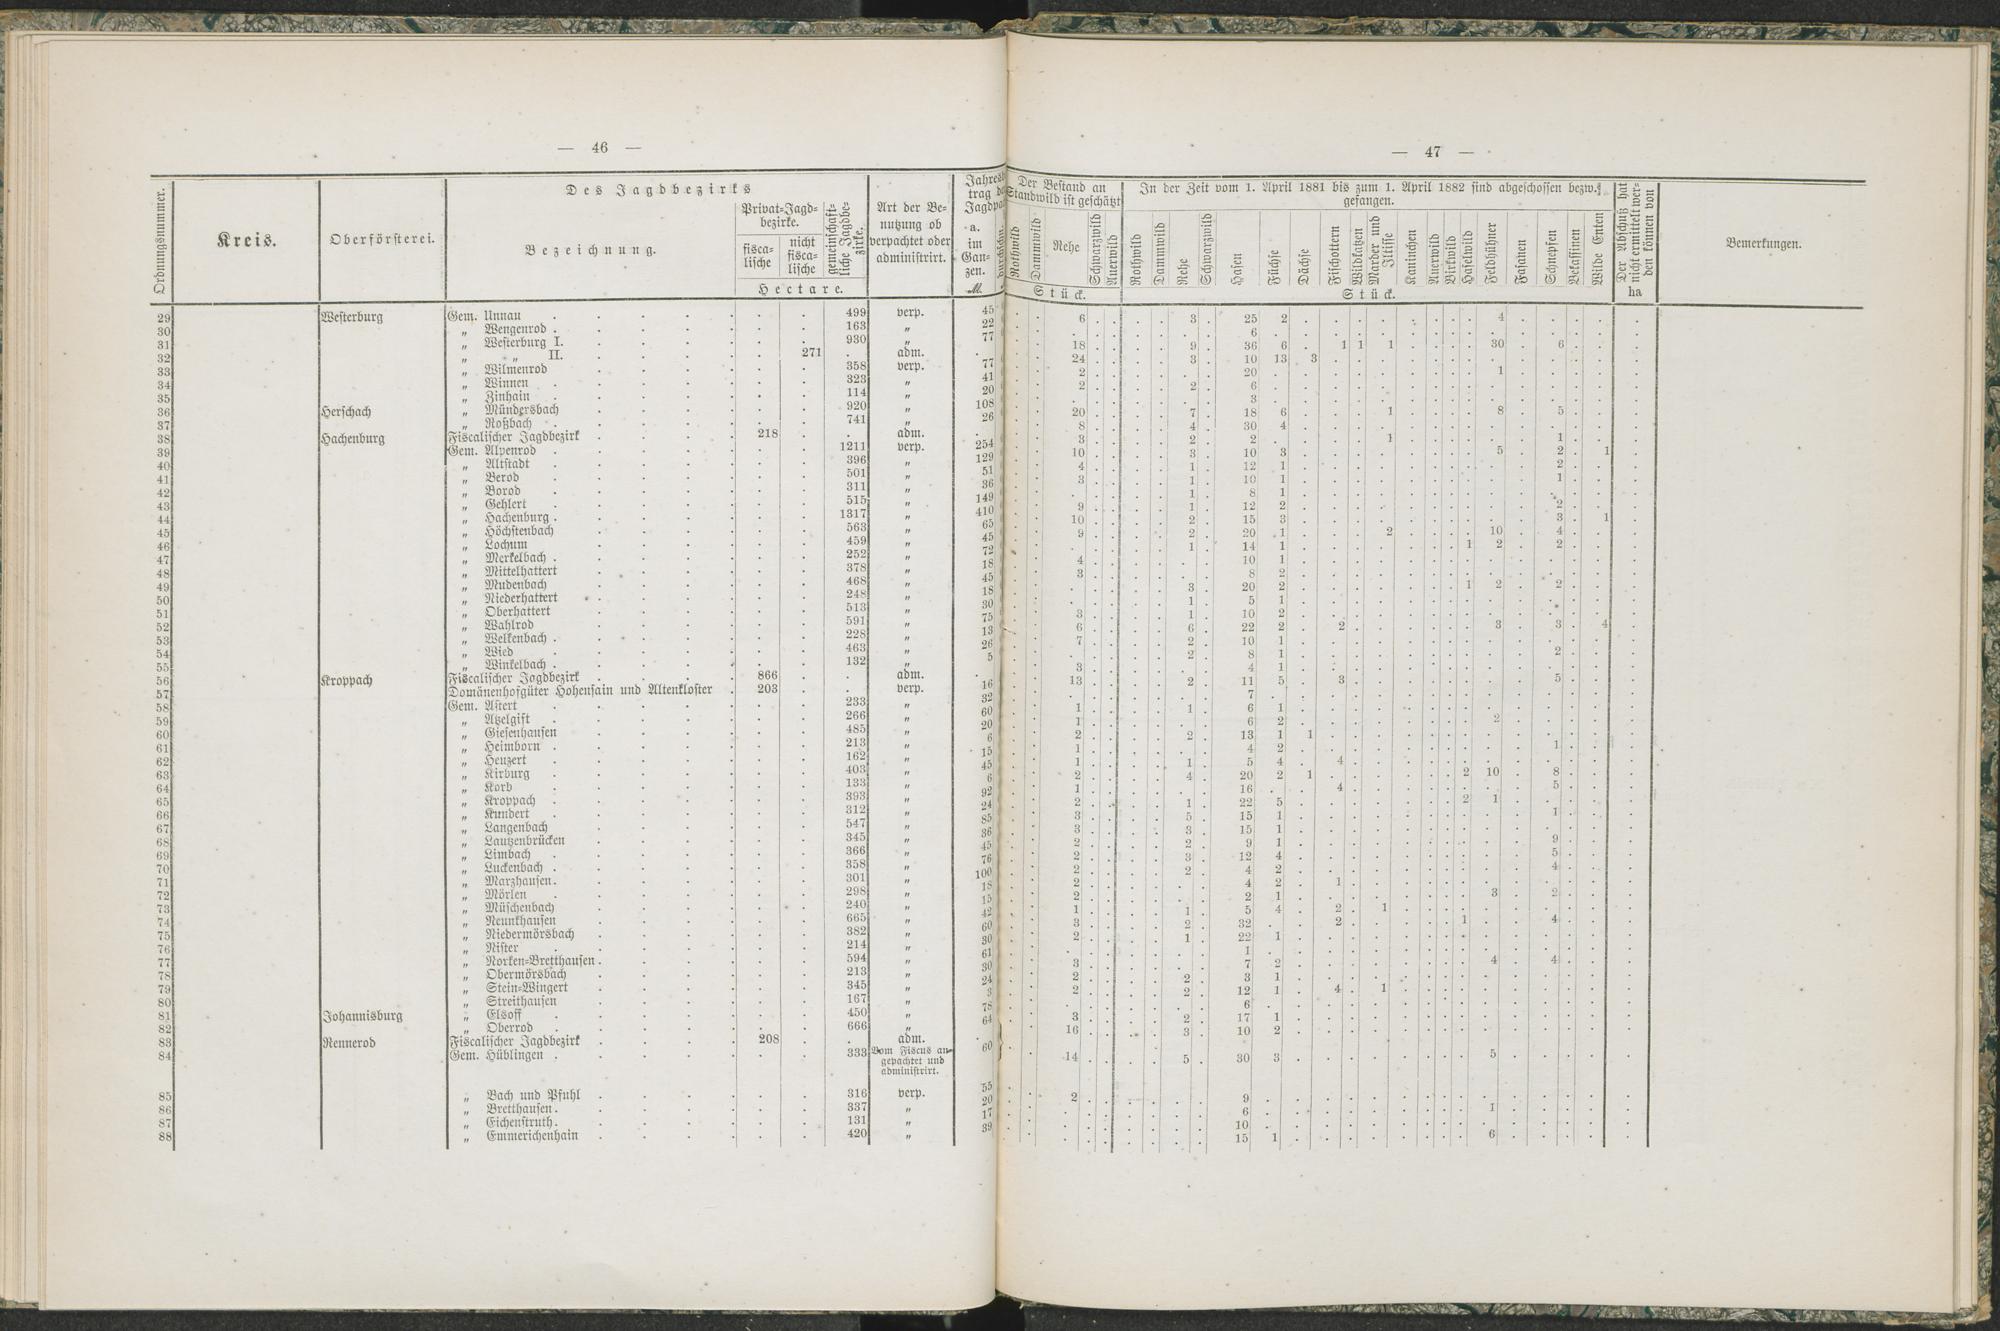 — 46 —
Ordnungsnummer.
Kreis.
Oberförsterei.
Des Jagdbezirks
Bezeichnung.
Privat-Jagdbezirke.
fiscalische
nicht fiscalische
gemeinschaftliche Jagdbezirke.
Hectare.
Art der Benutzung ob verpachtet oder administrirt.
a. im Ganzen.
M.
29 Westerburg Gem. Unnau 499 verp. 45
30 „ Wengenrod 163 „ 22
31 „ Westerburg I. 930 „ 77
32 „ „ II. 271 adm.
33 „ Wilmenrod 358 verp. 77
34 „ Winnen 323 „ 41
35 „ Zinhain 114 „ 20
36 Herschach „ Mündersbach 920 „ 108
37 „ Roßbach 741 „ 26
38 Hachenburg Fiscalischer Jagdbezirk 218 adm.
39 Gem. Alpenrod 1211 verp. 254
40 „ Altstadt 396 „ 129
41 „ Berod 501 „ 51
42 „ Borod 311 „ 36
43 „ Gehlert 515 „ 149
44 „ Hachenburg 1317 „ 410
45 „ Höchstenbach 563 „ 65
46 „ Lochum 459 „ 45
47 „ Merkelbach 252 „ 72
48 „ Mittelhattert 378 „ 18
49 „ Mudenbach 468 „ 45
50 „ Niederhattert 248 „ 18
51 „ Oberhattert 513 „ 30
52 „ Wahlrod 591 „ 75
53 „ Welkenbach 228 „ 13
54 „ Wied 463 „ 26
55 „ Winkelbach 132 „ 5
56 Kroppach Fiscalischer Jagdbezirk 866 adm.
57 Domänenhofgüter Hohensain und Altenkloster 203 verp. 16
58 Gem. Astert 233 „ 32
59 „ Atzelgift 266 „ 60
60 „ Giesenhausen 485 „ 20
61 „ Heimborn 213 „ 6
62 „ Heuzert 162 „ 15
63 „ Kirburg 403 „ 45
64 „ Korb 133 „ 6
65 „ Kroppach 393 „ 92
66 „ Kundert 312 „ 24
67 „ Langenbach 547 „ 85
68 „ Lautzenbrücken 345 „ 36
69 „ Limbach 366 „ 45
70 „ Luckenbach 358 „ 76
71 „ Marzhausen 301 „ 100
72 „ Mörlen 298 „ 18
73 „ Müschenbach 240 „ 15
74 „ Neunkhausen 665 „ 42
75 „ Niedermörsbach 382 „ 60
76 „ Nister 214 „ 30
77 „ Norken-Bretthausen 594 „ 61
78 „ Obermörsbach 213 „ 30
79 „ Stein-Wingert 345 „ 24
80 „ Streithausen 167 „ 3
81 Johannisburg „ Elsoff 450 „ 78
82 „ Oberrod 666 „ 64
83 Rennerod Fiscalischer Jagdbezirk 208 adm.
84 Gem. Hüblingen 333 Vom Fiscus angepachtet und administrirt. 60
85 „ Bach und Pfuhl 316 verp. 55
86 „ Bretthausen 337 „ 20
87 „ Eichenstruth 131 „ 17
88 „ Emmerichenhain 420 „ 39
— 47 —
Der Bestand an Standwild ist geschätzt
Rothwild Dammwild Rehe Schwarzwild Auerwild
Stück.
In der Zeit vom 1. April 1881 bis zum 1. April 1882 sind abgeschossen bezw. gefangen.
Rothwild Dammwild Rehe Schwarzwild Hasen Füchse Dächse Fischottern Wildkatzen Marder und Iltisse Kaninchen Auerwild Birkwild Haselwild Feldhühner Fasanen Schnepfen Bekassinen Wilde Enten
Stück.
Der Abschuß hat nicht ermittelt werden können von
ha
Bemerkungen.
6 3 25 2 4
6
18 9 36 6 1 1 1 30 6
24 3 10 13 3
2 20 1
2 2 6
3
20 7 18 6 1 8 5
8 4 30 4
3 2 2 1 1
10 3 10 3 5 2 1
4 1 12 1 2
3 1 10 1 1
1 8 1
9 1 12 2 2
10 2 15 3 3 1
9 2 20 1 2 10 4
1 14 1 1 2 2
4 10 1
3 8 2
3 20 2 1 2 2
1 5 1
3 1 10 2
6 6 22 2 2 3 3 4
7 2 10 1
2 8 1 2
3 4 1
13 2 11 5 3 5
7
1 1 6 1
1 6 2 2
2 2 13 1 1
1 4 2 1
1 1 5 4 4
2 4 20 2 1 2 10 8
1 16 4 5
2 1 22 5 2 1
3 5 15 1 1
3 3 15 1
2 2 9 1 9
2 3 12 4 5
2 2 4 2 4
2 4 2 1
2 2 1 3 2
1 1 5 4 2 1
3 2 32 2 1 4
2 1 22 1
1
3 7 2 4 4
2 2 3 1
2 2 12 1 4 1
6
3 2 17 1
16 3 10 2
14 5 30 3 5
2 9
6 1
10
15 1 6